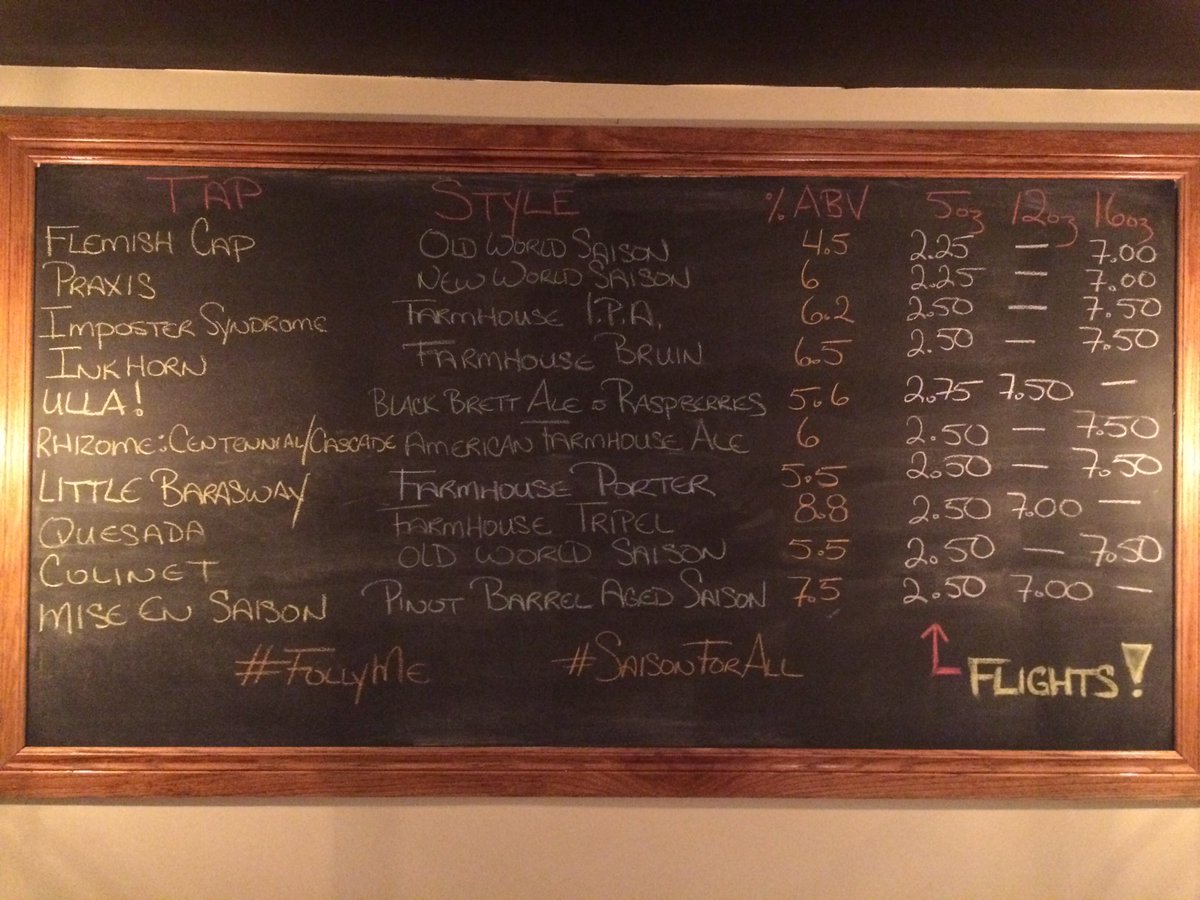 TAP STYLE % ABV 5oz 12oz 16oz
FLEMISH CAP OLD WORLD SAISON 4.5 2.25 — 7.00
PRAXIS NEW WORLD SAISON 6 2.25 — 7.00
IMPOSTER SYNDROME FARMHOUSE I.P.A. 6.2 2.50 — 7.50
INKHORN FARMHOUSE BRUIN 6.5 2.50 — 7.50
ULLA! BLACK BRETT ALE RASPBERRIES 5.6 2.75 7.50 —
RHIZOME: CENTENNIAL/CASCADE AMERICAN FARMHOUSE ALE 6 2.50 — 7.50
LITTLE BARASWAY FARMHOUSE PORTER 5.5 2.50 — 7.50
QUESADA FARMHOUSE TRIPEL 8.8 2.50 7.00 —
COLINET OLD WORLD SAISON 5.5 2.50 — 7.50
MISE EN SAISON PINOT BARREL AGED SAISON 7.5 2.50 7.00 —
#FOLLYME #SAISONFORALL FLIGHTS!